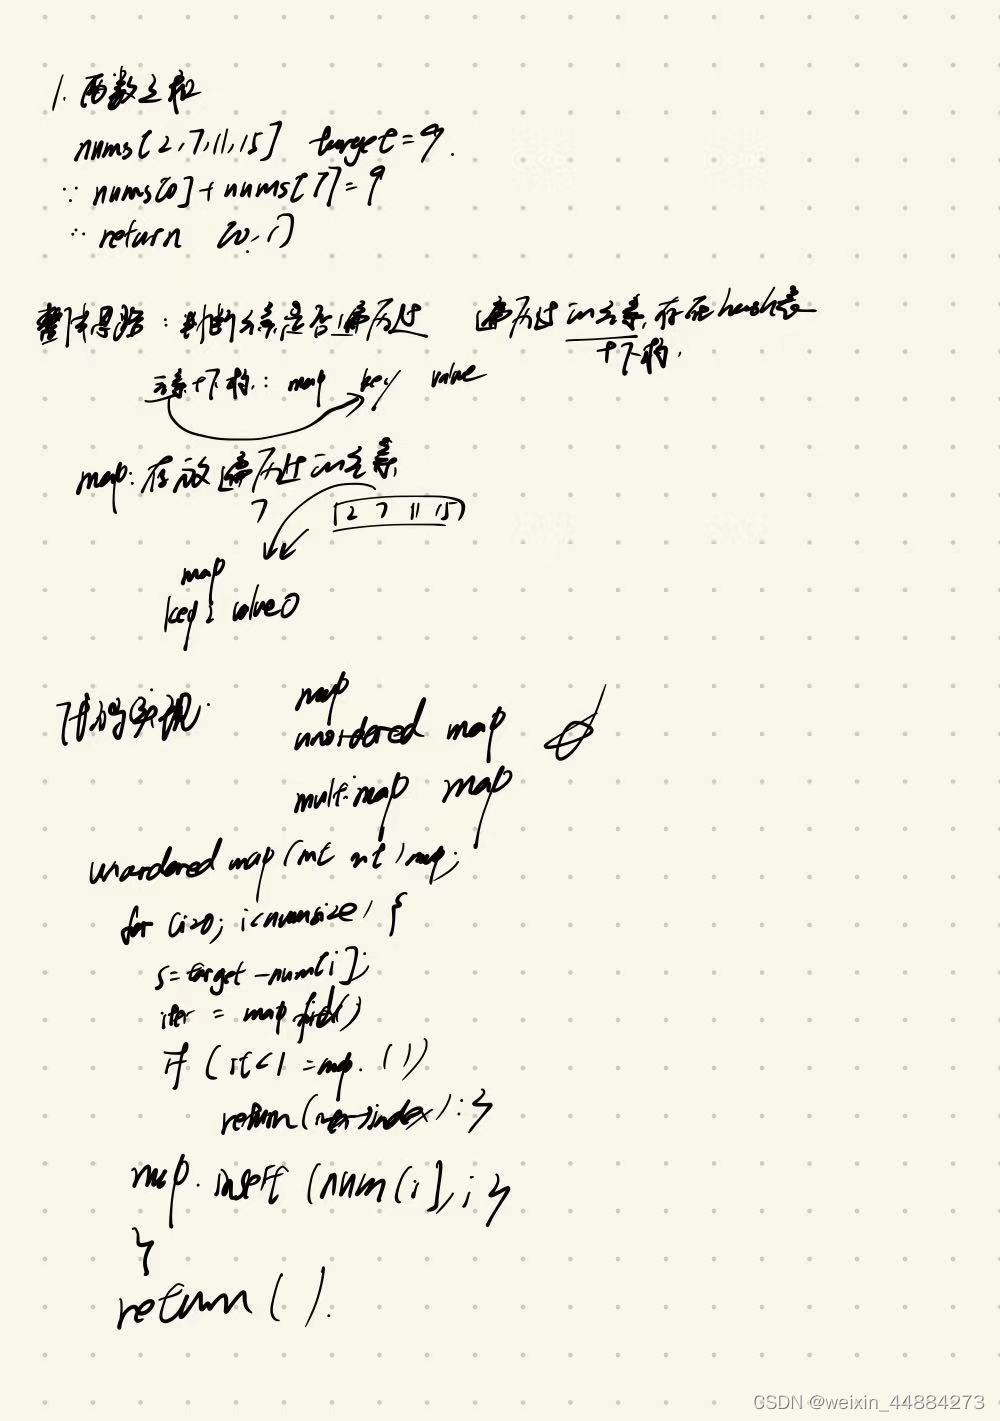 1. 两数之和
nums[2,7,11,15] target=9.
∵ nums[0]+nums[7]=9
∴ return [0,1]
整体思路:判断元素是否遍历过 遍历过的元素,存在hash表
+下标.
元素+下标: map key value
map:存放遍历过的元素.
7 [2 7 11 15]
map
key 2 value 0
代码实现.
map
unordered map
multimap map
unordered map (int int) map;
for (i=0; i<numsize) {
s=target-num[i];
iter = map find()
if ( =map. ( ))
return( ->index);}
map. insert (num[i],i}
}
return ( ).
CSDN @weixin_44884273